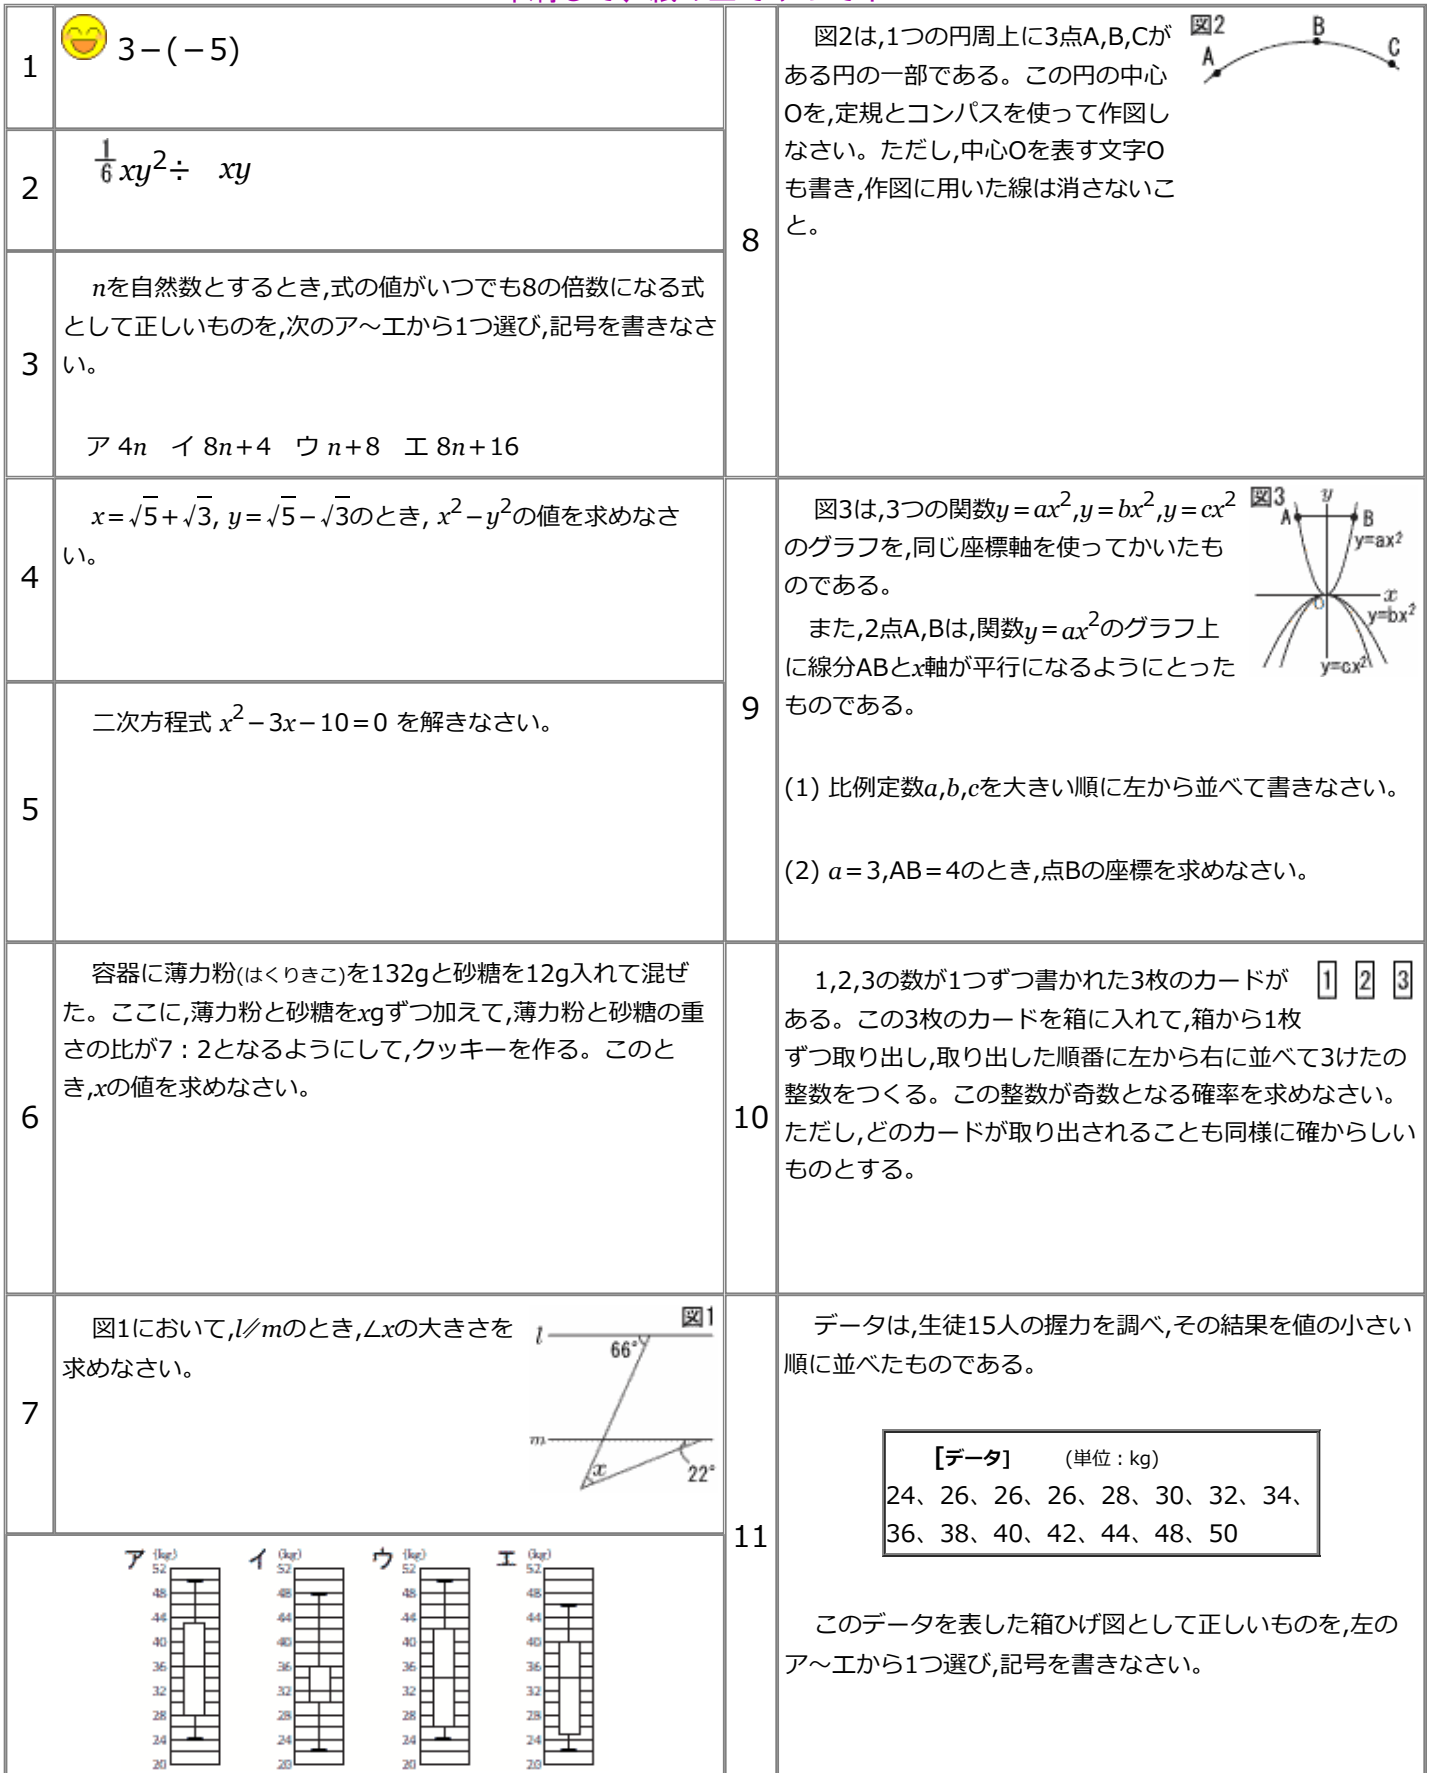 1
3−(−5)
2
1/6 xy²÷ xy
3
nを自然数とするとき,式の値がいつでも8の倍数になる式
として正しいものを,次のア～エから1つ選び,記号を書きなさ
い。
ア 4n イ 8n+4 ウ n+8 エ 8n+16
4
x=√5+√3, y=√5−√3のとき, x²−y²の値を求めなさ
い。
5
二次方程式 x²−3x−10=0 を解きなさい。
6
容器に薄力粉(はくりきこ)を132gと砂糖を12g入れて混ぜ
た。ここに,薄力粉と砂糖をxgずつ加えて,薄力粉と砂糖の重
さの比が7：2となるようにして,クッキーを作る。このと
き,xの値を求めなさい。
7
図1において,l∥mのとき,∠xの大きさを
求めなさい。
図1
l
66°
m
x
22°
ア (kg) イ (kg) ウ (kg) エ (kg)
52 52 52 52
48 48 48 48
44 44 44 44
40 40 40 40
36 36 36 36
32 32 32 32
28 28 28 28
24 24 24 24
20 20 20 20
8
図2は,1つの円周上に3点A,B,Cが
ある円の一部である。この円の中心
Oを,定規とコンパスを使って作図し
なさい。ただし,中心Oを表す文字O
も書き,作図に用いた線は消さないこ
と。
図2
A B C
9
図3は,3つの関数y=ax²,y=bx²,y=cx²
のグラフを,同じ座標軸を使ってかいたも
のである。
また,2点A,Bは,関数y=ax²のグラフ上
に線分ABとx軸が平行になるようにとった
ものである。
(1) 比例定数a,b,cを大きい順に左から並べて書きなさい。
(2) a=3,AB=4のとき,点Bの座標を求めなさい。
図3 y
A B
y=ax²
O x
y=bx²
y=cx²
10
1,2,3の数が1つずつ書かれた3枚のカードが
ある。この3枚のカードを箱に入れて,箱から1枚
ずつ取り出し,取り出した順番に左から右に並べて3けたの
整数をつくる。この整数が奇数となる確率を求めなさい。
ただし,どのカードが取り出されることも同様に確からしい
ものとする。
1 2 3
11
データは,生徒15人の握力を調べ,その結果を値の小さい
順に並べたものである。
[データ] (単位：kg)
24、26、26、26、28、30、32、34、
36、38、40、42、44、48、50
このデータを表した箱ひげ図として正しいものを,左の
ア～エから1つ選び,記号を書きなさい。